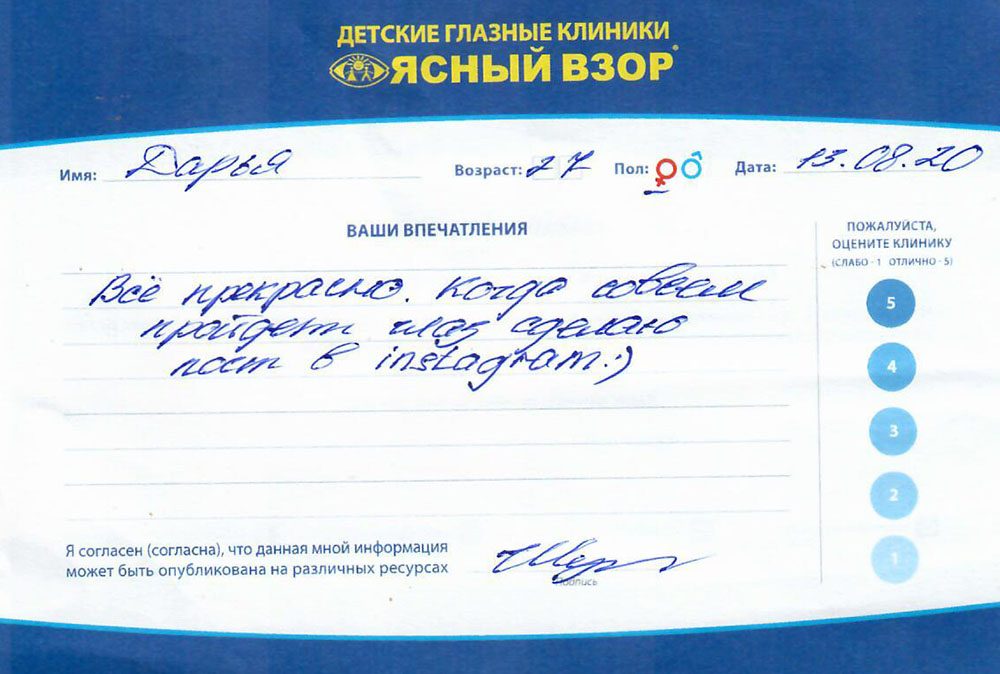 ДЕТСКИЕ ГЛАЗНЫЕ КЛИНИКИ
ЯСНЫЙ ВЗОР
Имя: Дарья Возраст: 27 Пол: Дата: 13.08.20
ВАШИ ВПЕЧАТЛЕНИЯ
ПОЖАЛУЙСТА,
ОЦЕНИТЕ КЛИНИКУ
(СЛАБО - 1 ОТЛИЧНО - 5)
Всё прекрасно. Когда совсем
пройдет глаз сделаю
пост в instagram:)
5
4
3
2
1
Я согласен (согласна), что данная мной информация
может быть опубликована на различных ресурсах
подпись